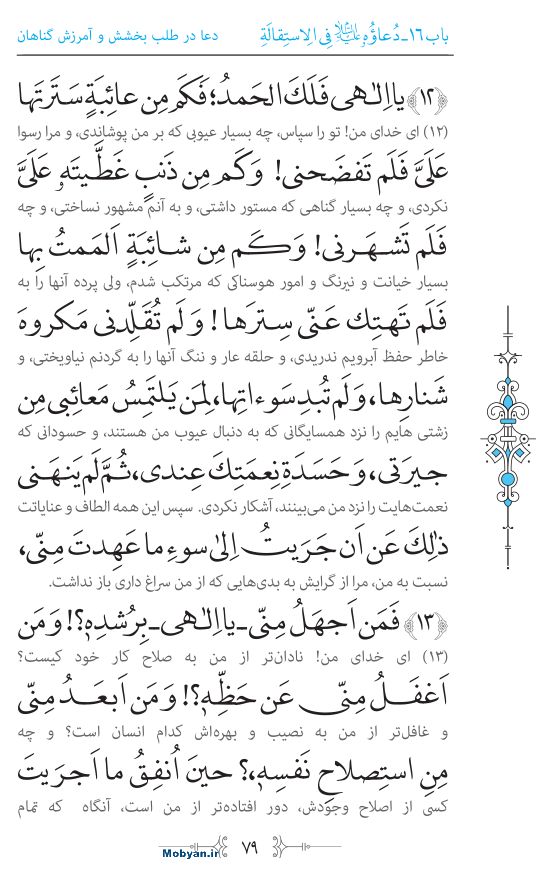 باب ۱۶- دُعاؤُهُ علیه‌السلام فِی الاِستِقالَةِ
دعا در طلب بخشش و آمرزش گناهان
﴿۱۲﴾ یا اِلٰاهی فَلَكَ الحَمدُ؛ فَكَم مِن عائِبَةٍ سَتَرتَها
(۱۲) ای خدای من! تو را سپاس، چه بسیار عیوبی که بر من پوشاندی، و مرا رسوا
عَلَیَّ فَلَم تَفضَحنی! وَ كَم مِن ذَنبٍ غَطَّیتَهُ عَلَیَّ
نکردی، و چه بسیار گناهی که مستور داشتی، و به آنم مشهور نساختی، و چه
فَلَم تَشهَرنی! وَ كَم مِن شائِبَةٍ اَلمَمتُ بِها
بسیار خیانت و نیرنگ و امور هوسناکی که مرتکب شدم، ولی پرده آنها را به
فَلَم تَهتِك عَنّی سِترَها! وَ لَم تُقَلِّدنی مَكروهَ
خاطر حفظ آبرویم ندریدی، و حلقه عار و ننگ آنها را به گردنم نیاویختی، و
شَنارِها، وَ لَم تُبدِ سَوءاتِها، لِمَن یَلتَمِسُ مَعائِبی مِن
زشتی هایم را نزد همسایگانی که به دنبال عیوب من هستند، و حسودانی که
جیرَتی، وَ حَسَدَةِ نِعمَتِكَ عِندی، ثُمَّ لَم یَنهَنی
نعمت‌هایت را نزد من می‌بینند، آشکار نکردی. سپس این همه الطاف و عنایاتت
ذٰلِكَ عَن اَن جَرَیتُ اِلیٰ سوءِ ما عَهِدتَ مِنّی،
نسبت به من، مرا از گرایش به بدی‌هایی که از من سراغ داری باز نداشت.
﴿۱۳﴾ فَمَن اَجهَلُ مِنّی - یا اِلٰاهی - بِرُشدِهِ؟! وَ مَن
(۱۳) ای خدای من! نادان‌تر از من به صلاح کار خود کیست؟
اَغفَلُ مِنّی عَن حَظِّهِ؟! وَ مَن اَبعَدُ مِنّی
و غافل‌تر از من به نصیب و بهره‌اش کدام انسان است؟ و چه
مِنِ استِصلاحِ نَفسِهِ،؟ حینَ اُنفِقُ ما اَجرَیتَ
کسی از اصلاح وجودش، دور افتاده‌تر از من است، آنگاه که تمام
۷۹
Mobyan.ir